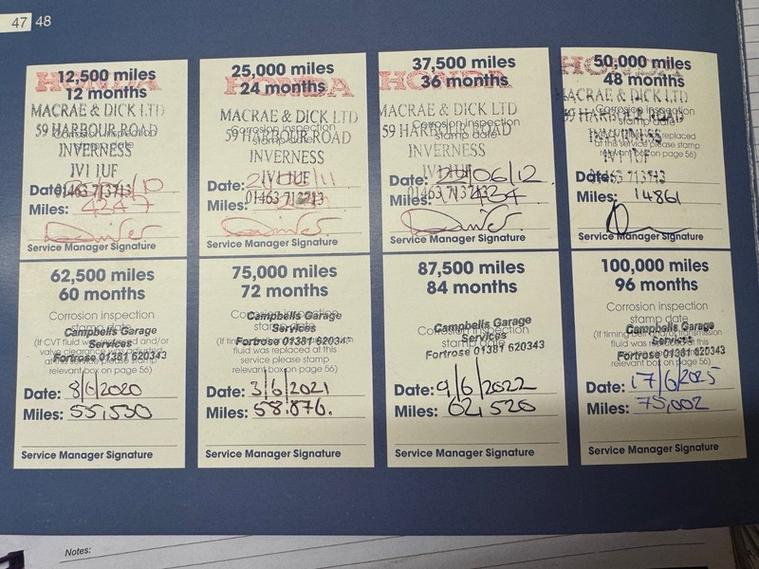 47 48
12,500 miles
12 months
HONDA
MACRAE & DICK LTD
59 HARBOUR ROAD
INVERNESS
IV1 1UF
01463 713713
Date:
Miles:
Service Manager Signature
25,000 miles
24 months
HONDA
MACRAE & DICK LTD
Corrosion inspection
59 HARBOUR ROAD
INVERNESS
IV1 1UF
01463 713713
Date:
Miles:
Service Manager Signature
37,500 miles
36 months
HONDA
MACRAE & DICK LTD
Corrosion inspection
59 HARBOUR ROAD
INVERNESS
IV1 1UF
01463 713713
Date: /06/12
Miles:
Service Manager Signature
50,000 miles
48 months
HONDA
MACRAE & DICK LTD
Corrosion inspection
stamp date
59 HARBOUR ROAD
INVERNESS
IV1 1UF
01463 713713
Date:
Miles: 14861
Service Manager Signature
62,500 miles
60 months
Corrosion inspection
stamp date
Campbells Garage
Services
Fortrose 01381 620343
relevant box on page 56)
Date: 8/6/2020
Miles: 55,530
Service Manager Signature
75,000 miles
72 months
Corrosion inspection
stamp date
Campbells Garage
Services
Fortrose 01381 620343
fluid was replaced at this
service please stamp
relevant box on page 56)
Date: 3/6/2021
Miles: 58.876.
Service Manager Signature
87,500 miles
84 months
Corrosion inspection
stamp date
Campbells Garage
Services
Fortrose 01381 620343
Date: 9/6/2022
Miles: 62,520
Service Manager Signature
100,000 miles
96 months
Corrosion inspection
stamp date
Campbells Garage
Services
Fortrose 01381 620343
relevant box on page 56)
Date: 17/6/2025
Miles: 75,002
Service Manager Signature
Notes: